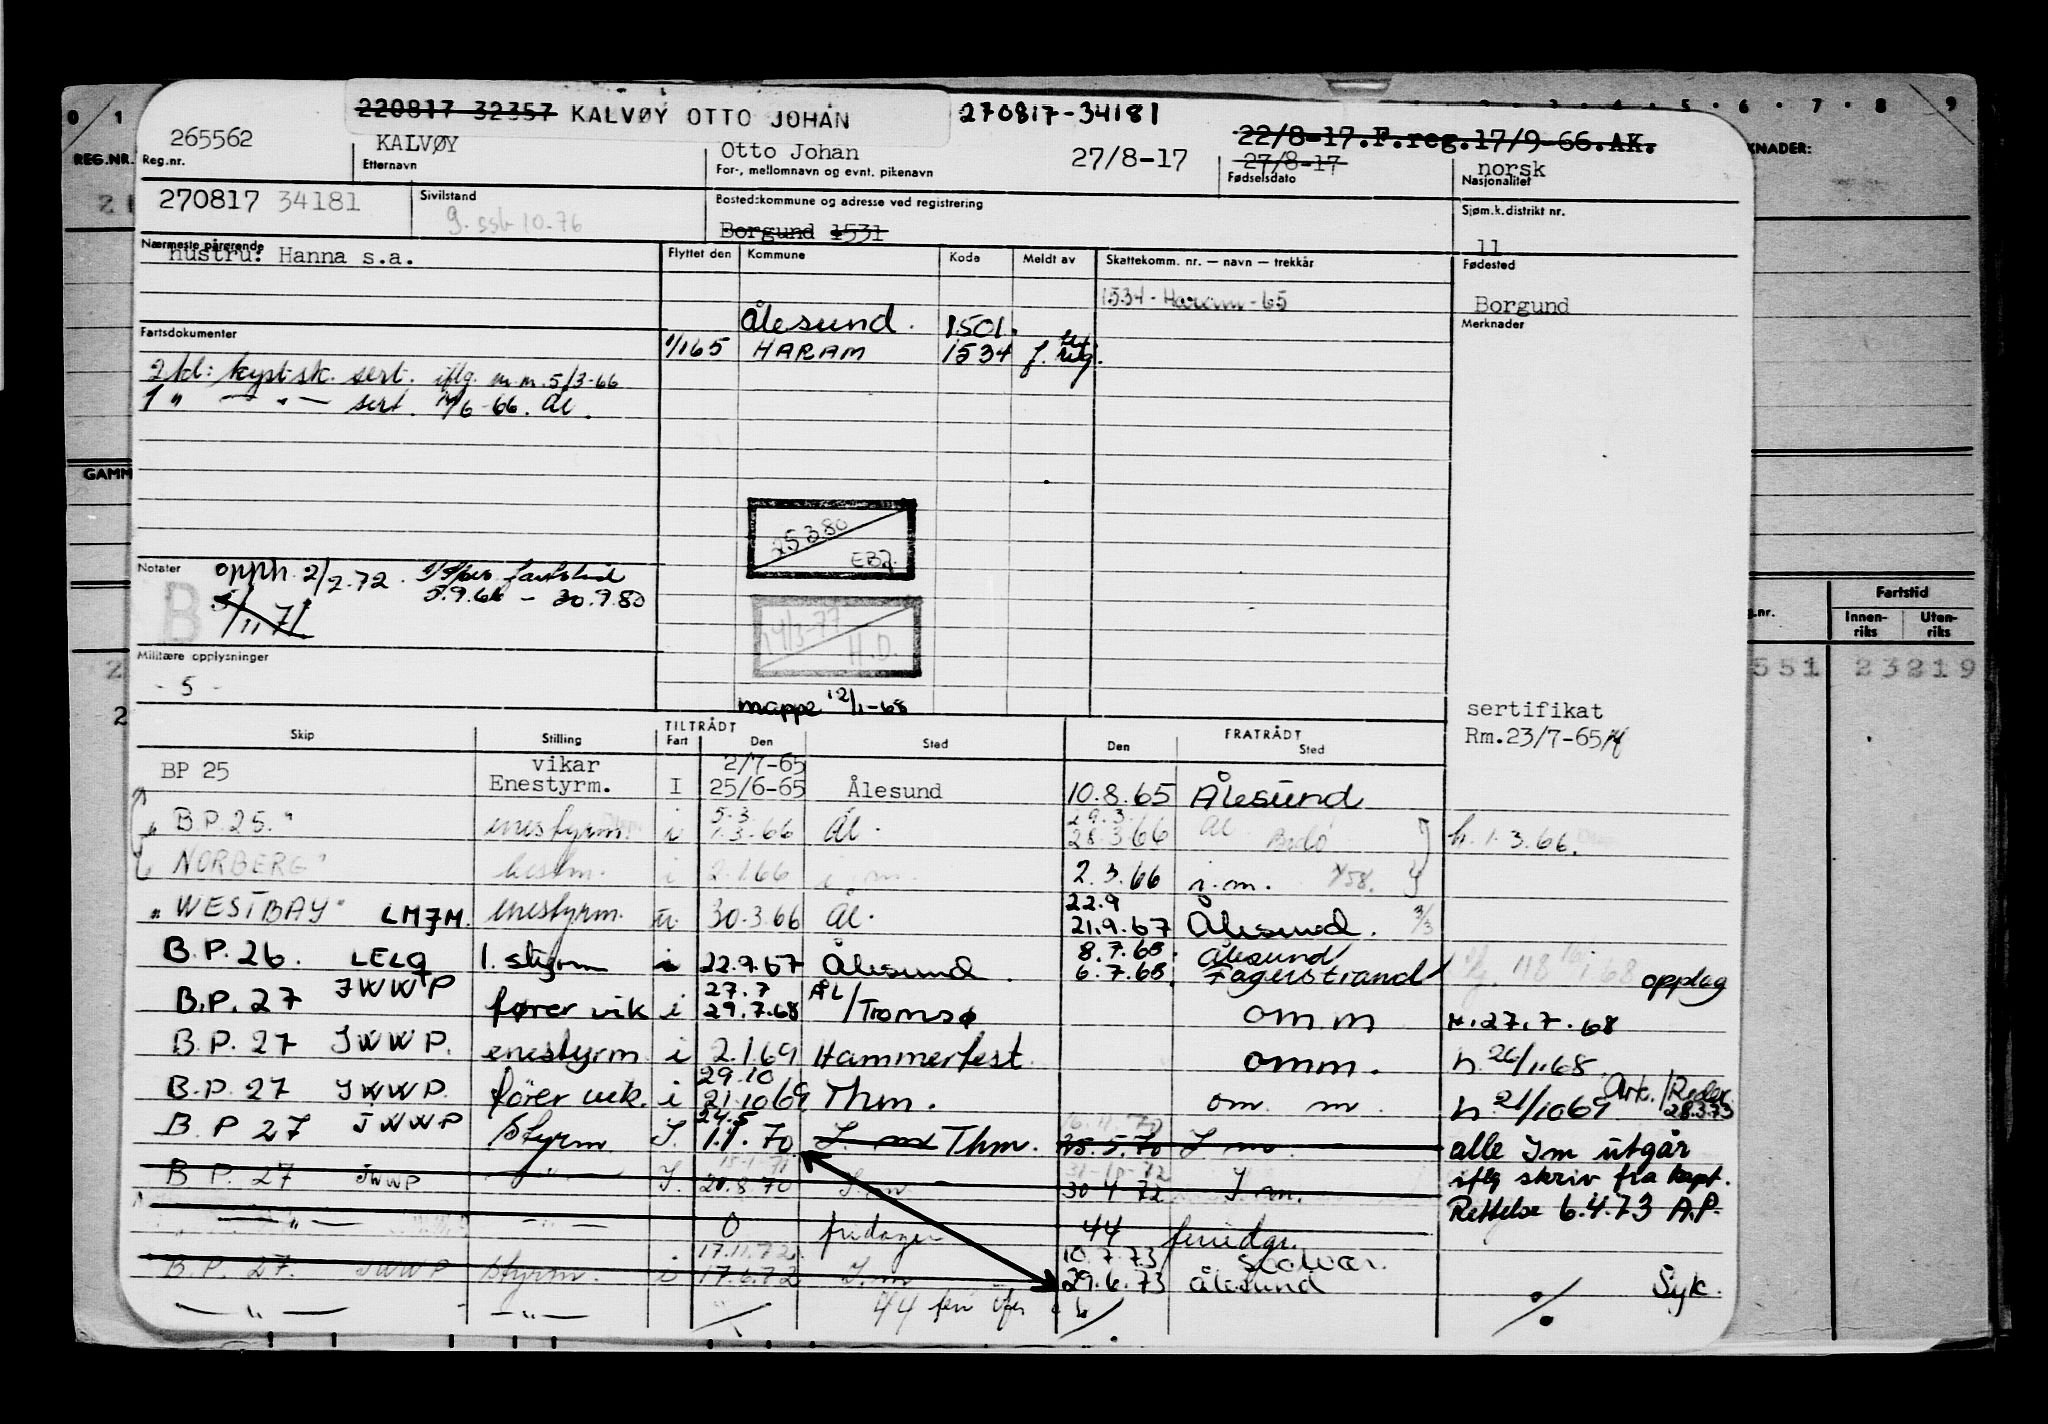 220817 32357 KALVØY OTTO JOHAN 270817-34181
22/8-17.F.reg.17/9-66.AK.
265562 KALVØY Otto Johan 27/8-17 27/8-17 norsk
Reg.nr. Etternavn For-, mellomnavn og evnt. pikenavn Fødselsdato Nasjonalitet
REG.NR.
KNADER:
270817 34181 Sivilstand Bostedskommune og adresse ved registrering Sjøm.k.distrikt nr.
g. ssb 10.76 Borgund 1531 11
Nærmeste pårørende Flyttet den Kommune Kode Meldt av Skattekomm. nr. — navn — trekkår Fødested
hustru: Hanna s.a.
1534-Haram-65 Borgund
Ålesund. 1501.
Fartsdokumenter Merknader
1/1 65 HARAM 1534 f. reg.
2 kl: kystsk. sert. iflg. m.m. 5/3-66
1 " — " — sert. /6-66. Ål.
GAMM
25 3 80
EBJ.
Notater opph. 2/2.72. fartstid
5.9.66 - 30.9.80
B 5/11 71
14/3-77
H.D.
Militære opplysninger
- 5 -
mappe 12/1-68
Fartstid
Innen-riks Uten-riks
551 23219
sertifikat
Rm.23/7-65
Skip Stilling TILTRÅDT Fart Den Sted FRATRÅDT Den Sted
BP 25 vikar Enestyrm. I 2/7-65 25/6-65 Ålesund 10.8.65 Ålesund
" B.P. 25. " enestyrm. i 5.3 1.3.66 Ål. 29.3. 28.3.66 Ål Bodø h. 1.3.66.
NORBERG" bestm. i 2.1.66 i m. 2.3.66 i.m.
"WESTBAY" LMJM. enestyrm. u. 30.3.66 Ål. 22.9 21.9.67 Ålesund. 3/3
B.P. 26. LELQ 1. styrm i 22.9.67 Ålesund 8.7.68. Ålesund 6.7.68. Fagerstrand opplag
B.P. 27 JWWP fører vik i 27.7 29.7.68 ÅL/Tromsø omm h. 27.7.68
B.P. 27 JWWP. enestyrm i 2.1.69 Hammerfest omm. h 26/11.68.
B.P. 27 JWWP. fører vik. i 29.10 21.10 69 Thm. om m h 21/10 69 Ark./Reder. 28.3.73
B.P 27 JWWP Styrm. I. 24.5 1.1.70 I. m Thm. 16.11.70 25.5.70 I. m alle Im utgår
B P. 27 JWWP — " — I. 20.8.70 I. m 31-10-72 30 4 72 I m. iflg skriv fra kapt.
— " — — " — 0 fridager 44 feriedgr. Rettelse 6.4.73 A.P.
B.P. 27. JWWP styrm. i 17.11.72 17.6.72 I. m 10.7.73 Svolvær. 29.6.73 Ålesund Syk.
— " — — " — 44 feri